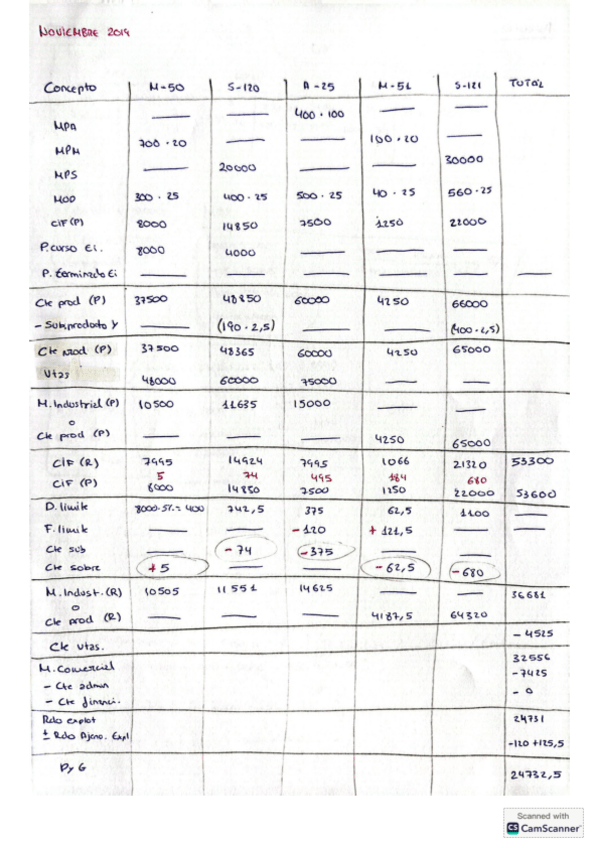 NOVIEMBRE 2019
Concepto M-50 S-120 A-25 M-51 S-121 TOTAL
MPA — — 400·100 — —
MPM 700·20 — — 100·20 —
MPS — 20000 — — 30000
MOD 300·25 400·25 500·25 40·25 560·25
CIF (P) 8000 14850 7500 1250 22000
P. curso Ei. 8000 4000 — — —
P. terminado Ei — — — — — —
Cte prod (P) 37500 48850 60000 4250 66000
- Subproducto y — (190·2,5) — — (400·2,5)
Cte prod (P) 37500 48365 60000 4250 65000
Vtas 48000 60000 75000 — —
M. Industrial (P) 10500 11635 15000 — —
o
Cte prod (P) — — — 4250 65000
CIF (R) 7995 14924 7995 1066 21320 53300
5 74 495 184 680
CIF (P) 8000 14850 7500 1250 22000 53600
D. limite 8000·5%= 400 742,5 375 62,5 1100 —
F. limite — — -120 +121,5 — —
Cte sub — -74 -375 — —
Cte sobre +5 — — -62,5 -680
M. Indust. (R) 10505 11551 14625 — — 36681
o
Cte prod (R) — — — 4187,5 64320
Cte vtas. -4525
M. Comercial 32556
- Cte admin -7425
- Cte financi. -0
Rdo explot 24731
± Rdo Ajeno. Expl -120 +125,5
PyG 24732,5
Scanned with
CS CamScanner